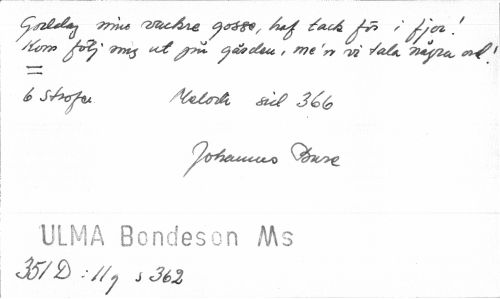 Goddag mine vackre gosse, haf tack för i fjor!
Kom följ mig ut på gården, me'n vi tala några ord!
=
6 strofer Melodi sid 366
Johannes
ULMA Bondeson Ms
351 D : 11 g s 362